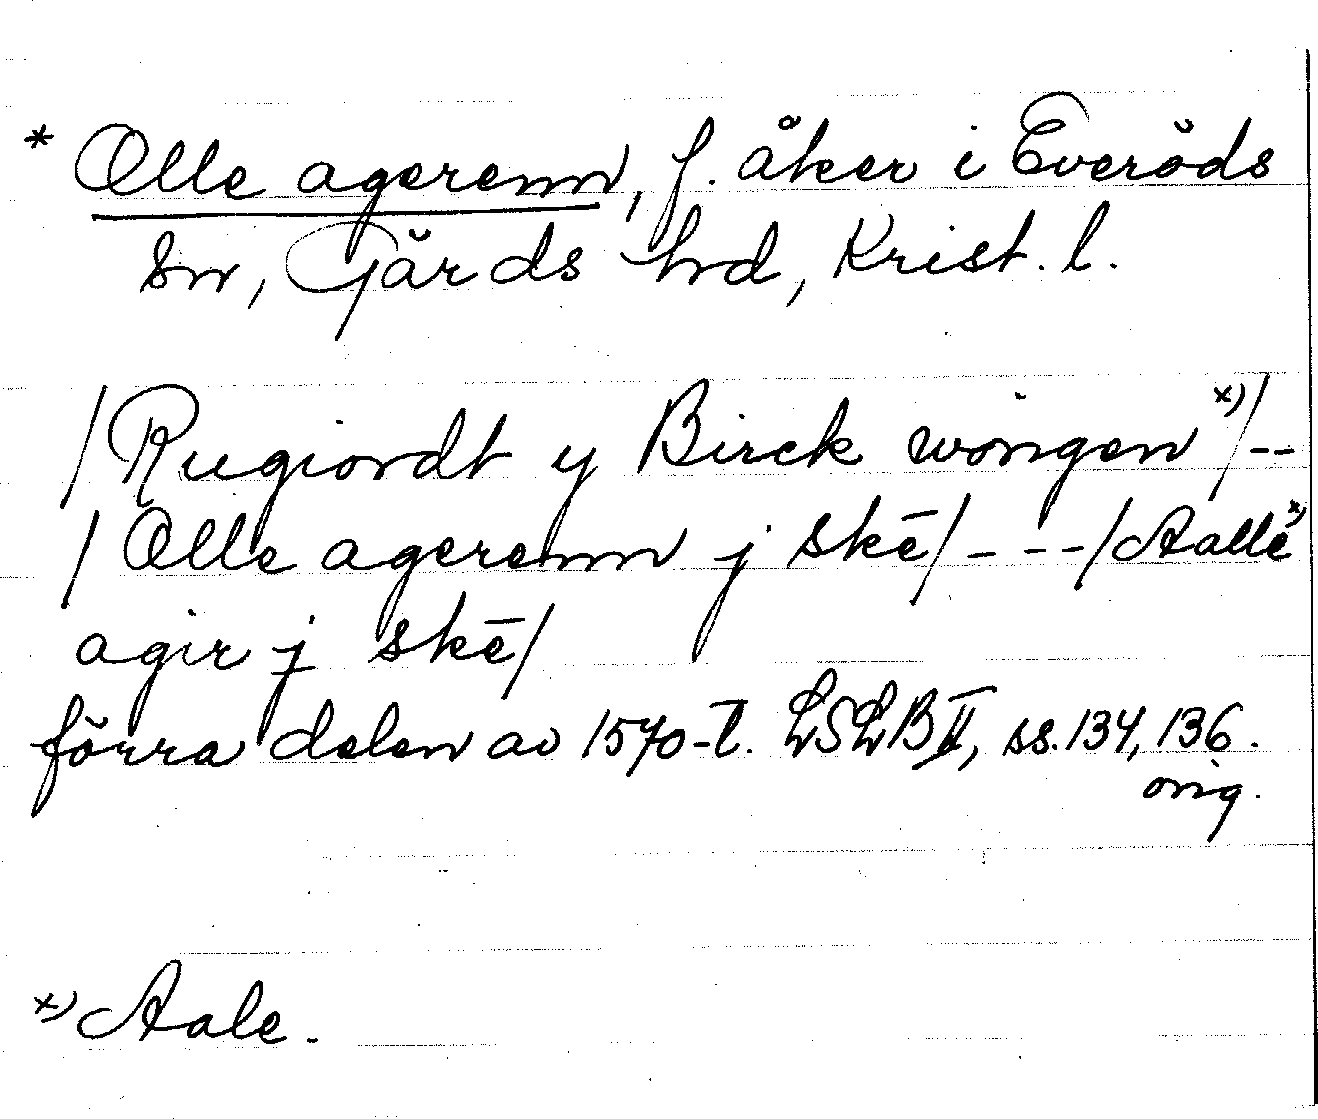 * Olle agerenn, f. åker i Everöds
sn, Gärds hd, Krist. l.
/Rugiordt y Birck wongen x)/--
/Olle agerenn j skē/---/Aalle x)
agir j skē/
förra delen av 1570-t. LSLB II, ss. 134, 136.
orig.
x) Aale.